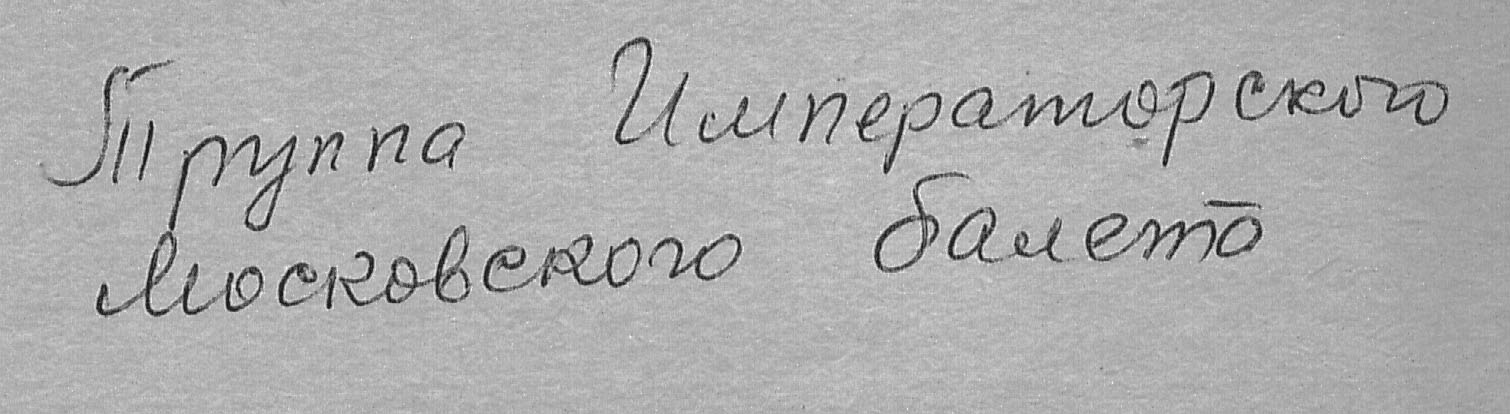 Труппа Императорского
Московского балета